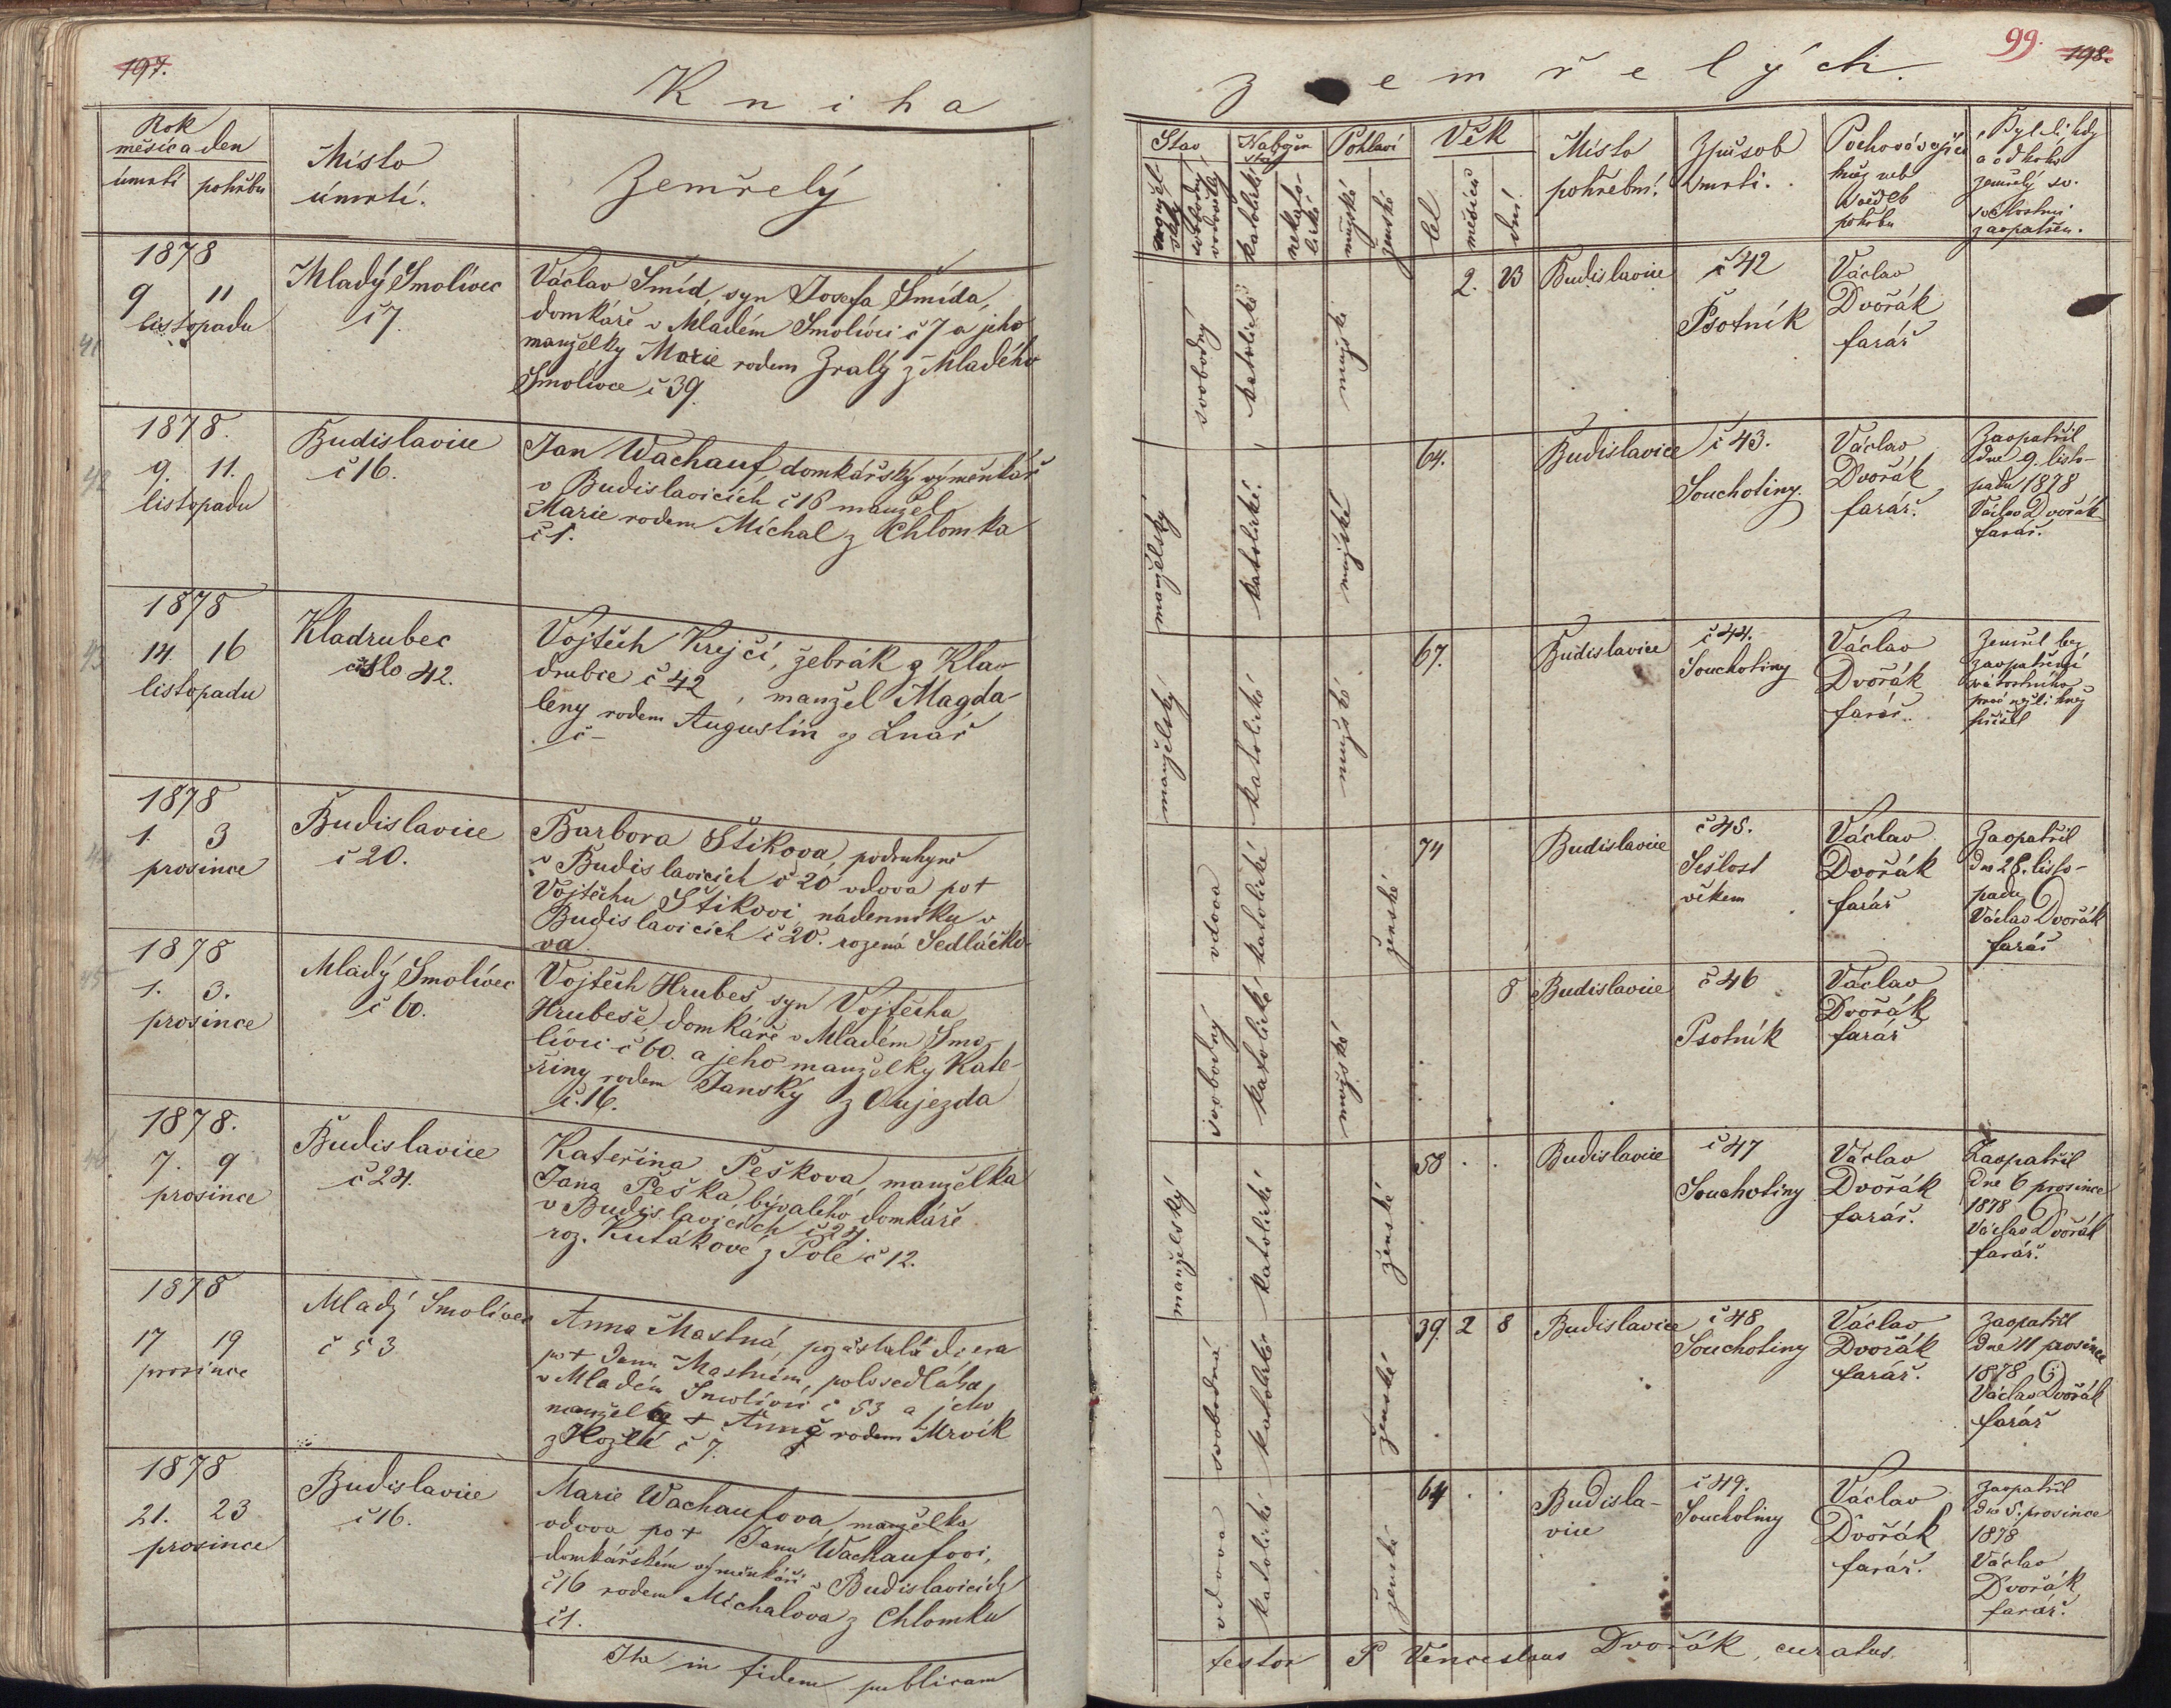 197.
Kniha
Rok
měsíc a den
úmrtí
pohřbu
Místo
úmrtí.
Zemřelý
1878
9 11
listopadu
Mladý Smolivec
č 7.
Václav Šmíd, syn Josefa Šmída,
domkáře v Mladém Smolivci č 7 a jeho
manželky Marie rodem Zralý z Mladého
Smolivce č 39.
41
1878.
9. 11.
listopadu
Budislavice
č 16.
Jan Wachauf, domkářský výměnkář
v Budislavicích č 16 manžel
Marie rodem Michal z Chlomka
č 1.
42
1878
14. 16
listopadu
Kladrubec
číslo 42.
Vojtěch Krejčí, žebrák z Kla-
drubce č 42, manžel Magda-
leny rodem Augustin z Lnář
č –
43
1878
1. 3
prosince
Budislavice
č 20.
Barbora Štikova, podruhyně
v Budislavicích č 20 vdova po †
Vojtěchu Štikovi, nádenníku v
Budislavicích č 20. rozená Sedláčko-
va.
44
1878
1. 3.
prosince
Mladý Smolivec
č 60.
Vojtěch Hrubeš, syn Vojtěcha
Hrubeše, domkáře v Mladém Smo-
livci č 60. a jeho manželky Kate-
řiny rodem Janský z Oujezda
č. 16.
45
1878.
7. 9
prosince
Budislavice
č 24.
Kateřina Peškova, manželka
Jana Peška, bývalého domkáře
v Budislavicích č 24.
roz. Kutákové z Pole č 12.
46
1878
17 19
prosince
Mladý Smolivec
č 53
Anna Mastná, pozůstalá dcera
po † Janu Mastném, polosedláka
v Mladém Smolivci č 53 a jeho
manželky † Anny rodem Mrvík
z Kozčí č 7.
1878
21. 23
prosince
Budislavice
č 16.
Marie Wachaufova manželka
vdova po † Janu Wachaufovi,
domkářském výměnkáři v Budislavicích
č 16 rodem Michalova z Chlomku
č 1.
Ita in fidem publicam
99. 198.
Zemřelých.
Stav
manžel-
ský
svobodný
vdovský
Nábožen
ství
katolické
nekato-
lické
Pohlaví
mužské
ženské
Věk
let
měsíců
dní
Místo
pohřební.
Způsob
smrti.
Pochovávající
kněz neb
vůdce
pohřbu
Byl-li, kdy
a od koho
zemřelý sv.
svátostmi
zaopatřen.
svobodný
katolické
mužské
2. 23
Budislavice
č 42
Psotník
Václav
Dvořák
farář
manželský
katolické.
mužské
64.
Budislavice
č 43.
Souchotiny.
Václav
Dvořák
farář.
Zaopatřil
dne 9. listo-
padu 1878
Václav Dvořák
farář.
manželský
katolické
mužské
67.
Budislavice
č 44.
Souchotiny
Václav
Dvořák
farář.
Zemřel bez
zaopatření
svátostního
prvé nežli kněz
přišel
vdova
katolické
ženské
74
Budislavice
č 45.
Sešlost
věkem
Václav
Dvořák
farář
Zaopatřil
dne 28. listo-
padu
Václav Dvořák
farář
svobodný
katolické
mužské
8
Budislavice
č 46
Psotník
Václav
Dvořák
farář
manželský
katolické
ženské
58
Budislavice
č 47
Souchotiny
Václav
Dvořák
farář.
Zaopatřil
dne 6 prosince
1878
Václav Dvořák
farář.
svobodná
katolické
ženské
39. 2 8
Budislavice
č 48
Souchotiny
Václav
Dvořák
farář.
Zaopatřil
dne 11 prosince
1878
Václav Dvořák
farář
vdova
katolické
ženské
64
Budisla-
vice
č 49.
Souchotiny
Václav
Dvořák
farář.
Zaopatřil
dne 5. prosince
1878
Václav
Dvořák
farář.
testor P Venceslaus Dvořák, curatus.